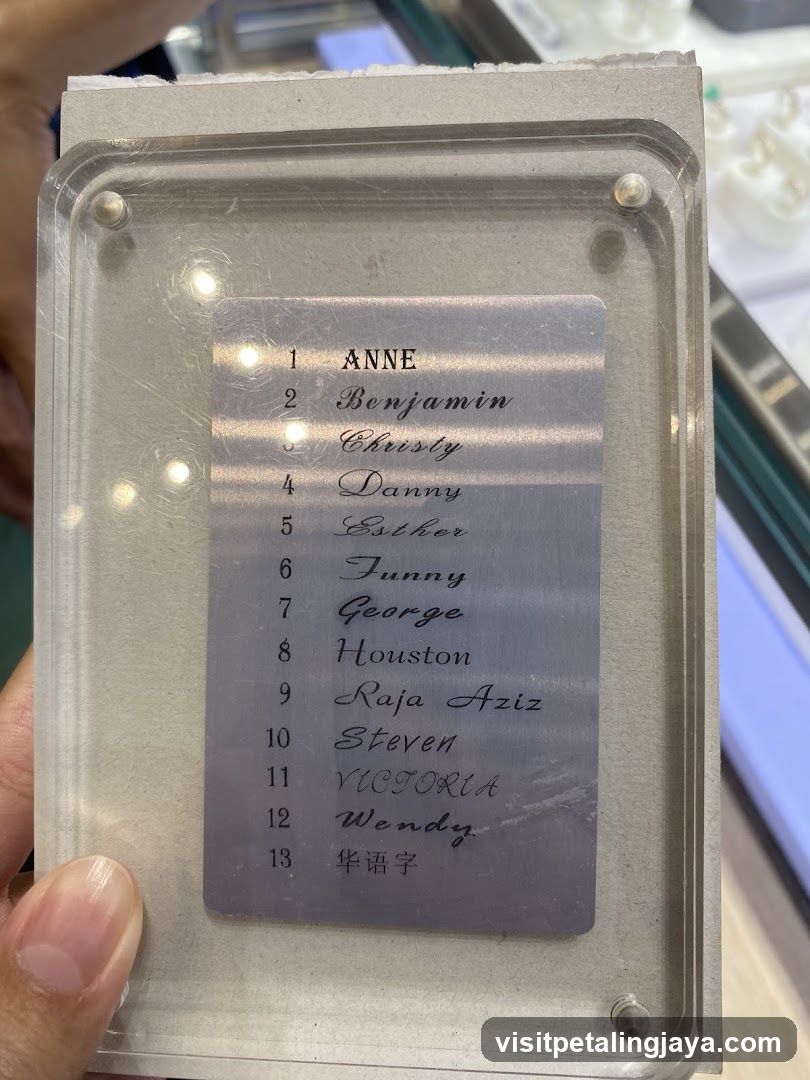 1 ANNE
2 Benjamin
3 Christy
4 Danny
5 Esther
6 Funny
7 George
8 Houston
9 Raja Aziz
10 Steven
11 VICTORIA
12 Wendy
13 华语字
visitpetalingjaya.com